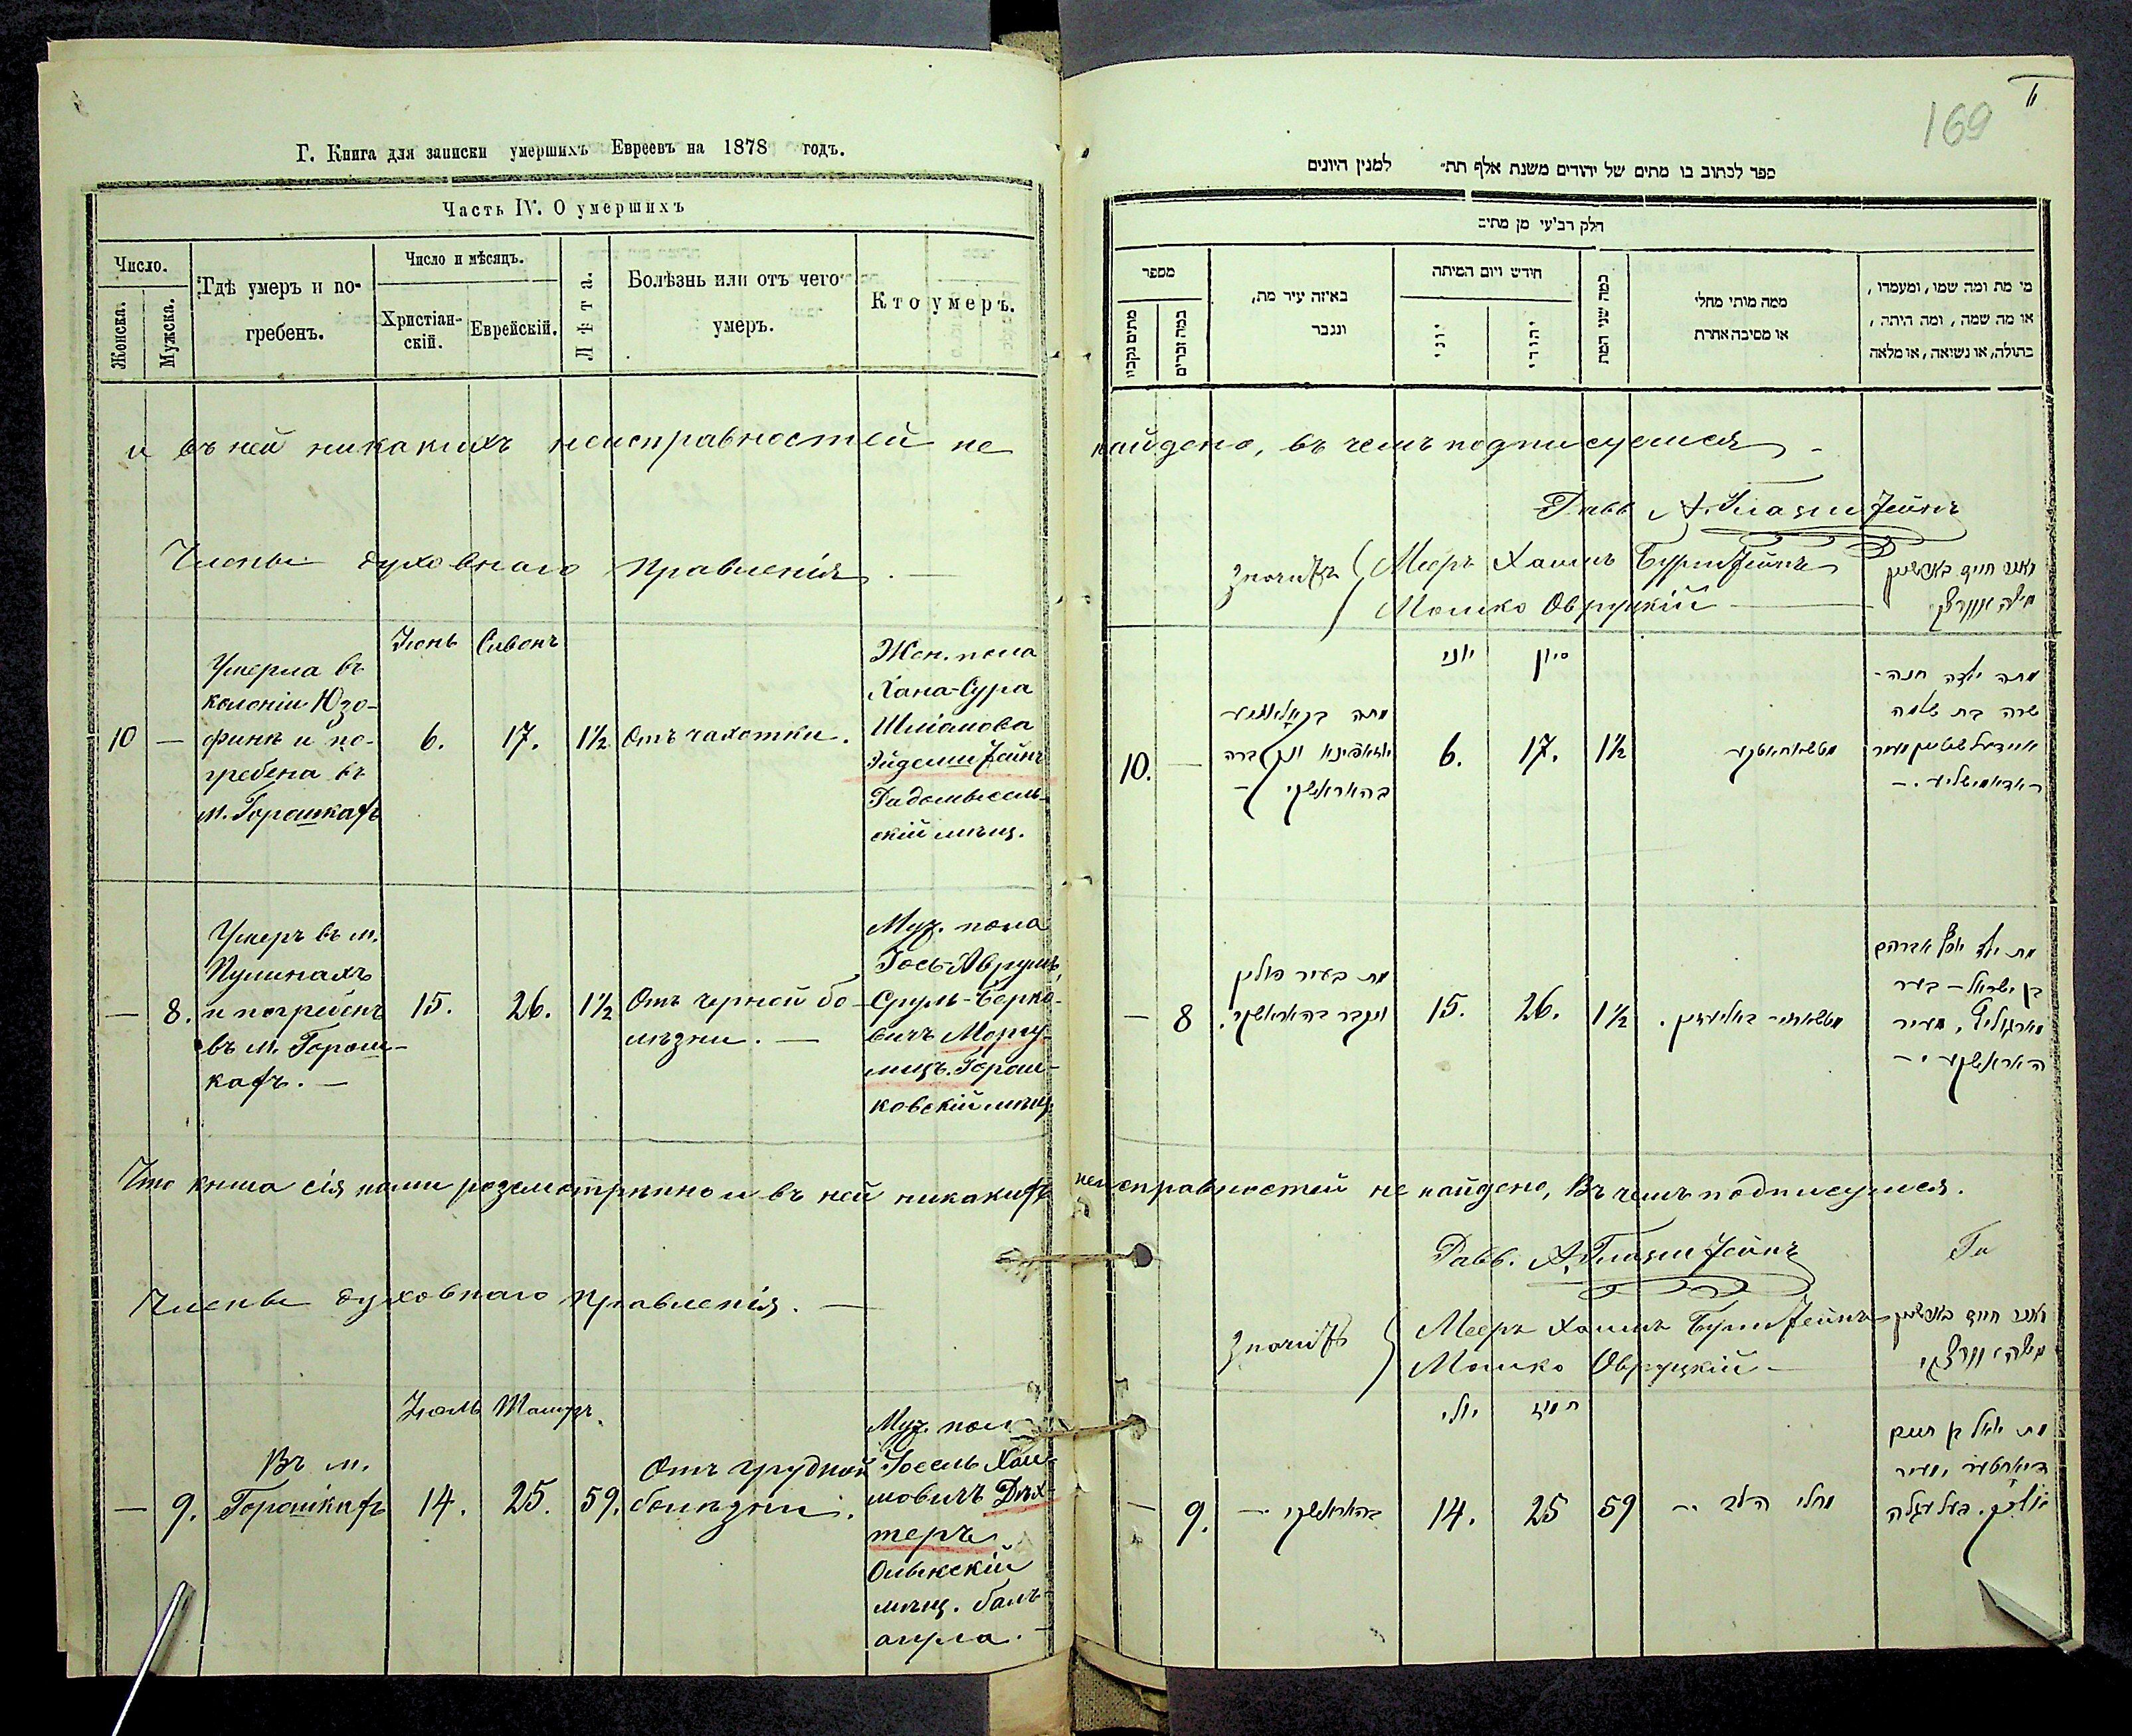 Г. Книга для записки умершихъ Евреевъ на 1878 годъ.
Часть IV. О умершихъ
Число.
Женска.
Мужска.
Гдѣ умеръ и по-
гребенъ.
Число и мѣсяцъ.
Христіан-
скій.
Еврейскій.
Лѣта.
Болѣзнь или отъ чего
умеръ.
Кто умеръ.
и въ ней никакихъ неисправностей не
Члены духовнаго правленія. —
Іюнь Сивонъ
10 —
Умерла въ
колоніи Юзо-
финѣ и по-
гребена въ
м. Горошкахъ
6. 17. 1½
Отъ чахотки.
Жен. пола
Хана-Сура
Шліомова
Эйдельштейнъ
Радомысель-
скій мѣщ.
— 8.
Умеръ въ м.
Пулинахъ
и погребенъ
въ м. Горош-
кахъ. —
15. 26. 1½
Отъ черной бо-
лѣзни. —
Муж. пола
Іось-Аврумъ
Сруль-Берко-
вичъ Маргу-
лицъ. Горош-
ковскій мѣщ.
Что книга сія нами розсмотрѣнно и въ ней никакихъ
Члены духовнаго правленія. —
Іюль Тамузъ
— 9.
Въ м.
Горошкахъ
14. 25. 59.
Отъ грудной
болѣзни.
Муж. пол
Іосель Хаи-
мовичъ Дех-
теръ
Олыкскій
мѣщ. балъ-
агула. —
169
ספר לכתוב בו מתים של יהודים משנת אלף תת״ למנין היונים
חלק רביעי מן מתים
מספר
מתים נקבות
כמה זכרים
באיזה עיר מת,
ונגבר
חידש ויום המיתה
יוני
יהודי
כמה שני המת
ממה מותי מחלי
או מסיבה אחרת
מי מת ומה שמו, ומעמדו,
או מה שמה, ומה היתה,
בתולה, או נשיאה, או מלאה
найдено, въ чемъ подписуемся —
Рабб. А. Глазштейнъ
Значитъ Мееръ Хаимъ Бурштейнъ
Мошко Овруцкій —
יוני סיון
10. —
6. 17. 1½
מתה ילדה חנה-
שרה בת שלמה
— 8
מת בעיר פולין
ונקבר בהאראשקי.
15. 26. 1½
מת ילד יוסף אברהם
בן ישראל – בער
מארגוליס, מעיר
האראשקי –
неисправностей не найдено, въ чемъ подписуемся.
Рабб. А. Глазштейнъ
Значитъ Мееръ Хаимъ Бурштейнъ
Мошко Овруцкій —
יולי תמוז
— 9.
בהאראשקי —
14. 25 59
מחלי הלב